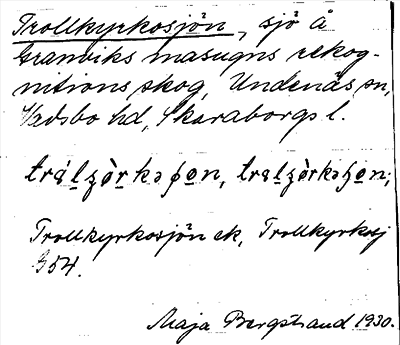 Trollkyrkosjön, sjö å
Granviks masugns rekog-
nitionsskog, Undenäs sn,
Vadsbo hd, Skaraborgs l.
Trollkyrkosjön ek, Trollkyrkosj
G54.
Maja Bergstrand 1930.